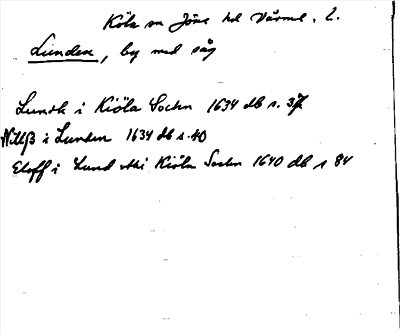 Köla sn Jöss hd Värml. l.
Lunden, by med såg
Lundh i Kiöla Sochn 1634 db s. 37
Nillß i Lunden 1634 db s. 40
Eloff i Lund uthi Kiöla Sochn 1640 db s 84